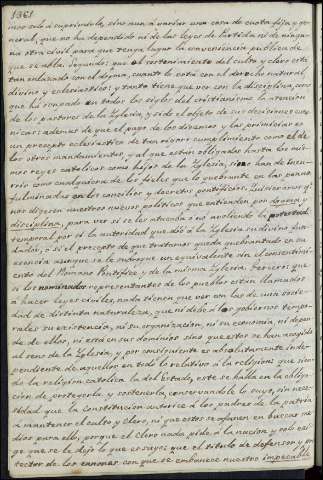 1361
mero solo á suprimirla, sino aun á variar una cosa de cuota fija y ge-
neral, que no ha dependido ni de las leyes de Partida ni de ningu-
na otra civil para que tenga lugar la conveniencia publica de
que se habla. Segundo: que el sostenimiento del culto y clero está
tan enlazado con el dogma, cuanto lo está con el derecho natural,
divino y eclesiastico; y tanto tiene que ver con la disciplina, como
que ha ocupado en todos los siglos del cristianismo la atencion
de los pastores de la Yglesia, y sido el objeto de sus decisiones cano-
nicas; ademas de que el pago de los diezmos y las primicias es
un precepto eclesiastico de tan rigoroso cumplimiento como el de
los otros mandamientos, y al que estan obligados hasta los mis-
mos reyes catolicos como hijos de la Yglesia, si no han de incur-
rir como cualquiera de los fieles que lo quebrante en las penas
fulminadas en los concilios y decretos pontificios. Quisieramos q.
nos dijeran nuestros nuevos politicos que entienden por dogma y
disciplina, para ver si se les atacaba ó no aboliendo la potestad
temporal por sí la autoridad que dió á la Yglesia su divino fun-
dador; y si el precepto de que tratamos queda quebrantado en su
esencia aunque se le subrogue un equivalente sin el consentimi-
ento del Romano Pontifice y de la misma Yglesia. Tercero: que
si los nominados representantes de los pueblos estan llamados
á hacer leyes civiles, nada tienen que ver con las de una socie-
dad de distinta naturaleza, que ni debe á los gobiernos tempo-
rales su existencia, ni su organizacion, ni su economía, ni depen-
de de ellos, ni está en sus dominios sino que estos se han acogido
al seno de la Yglesia, y por consiguiente es absolutamente inde-
pendiente de aquellos en todo lo relativo á la religion: que sien-
do la religion catolica la del Estado, este se halla en la obliga-
cion de protegerla y sostenerla, conservandole lo suyo, sin nece-
sidad que la Constitucion autorice á los padres de la patria
á mantener el culto y clero, ni que estos se afanen en buscar me-
dios para ello, porque el clero nada pide á la nacion y solo exi-
ge que se le deje lo que es suyo: que el titulo de defensor y pro-
tector de los canones con que se embanece nuestro impecable